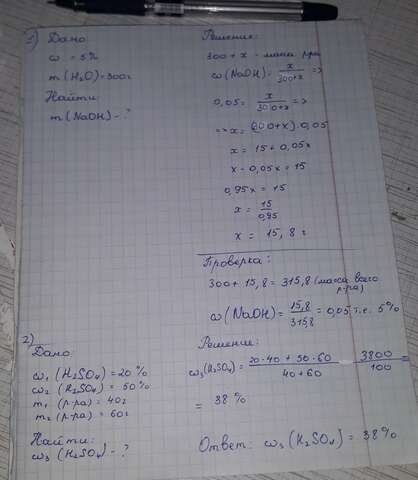 1) Дано:
ω = 5%
m(H₂O) = 300г
Найти:
m(NaOH) - ?
Решение:
300 + x - масса р-ра
ω(NaOH) = x/(300+x) =>
0,05 = x/(300+x) =>
=> x = (300+x)·0,05
x = 15 + 0,05x
x - 0,05x = 15
0,95x = 15
x = 15/0,95
x = 15,8 г
Проверка:
300 + 15,8 = 315,8 (масса всего р-ра)
ω(NaOH) = 15,8/315,8 = 0,05, т.е. 5%
2)
Дано:
ω₁(H₂SO₄) = 20%
ω₂(H₂SO₄) = 50%
m₁(р-ра) = 40г
m₂(р-ра) = 60г
Найти:
ω₃(H₂SO₄) - ?
Решение:
ω₃(H₂SO₄) = (20·40 + 50·60)/(40+60) = 3800/100 =
= 38%
Ответ: ω₃(H₂SO₄) = 38%